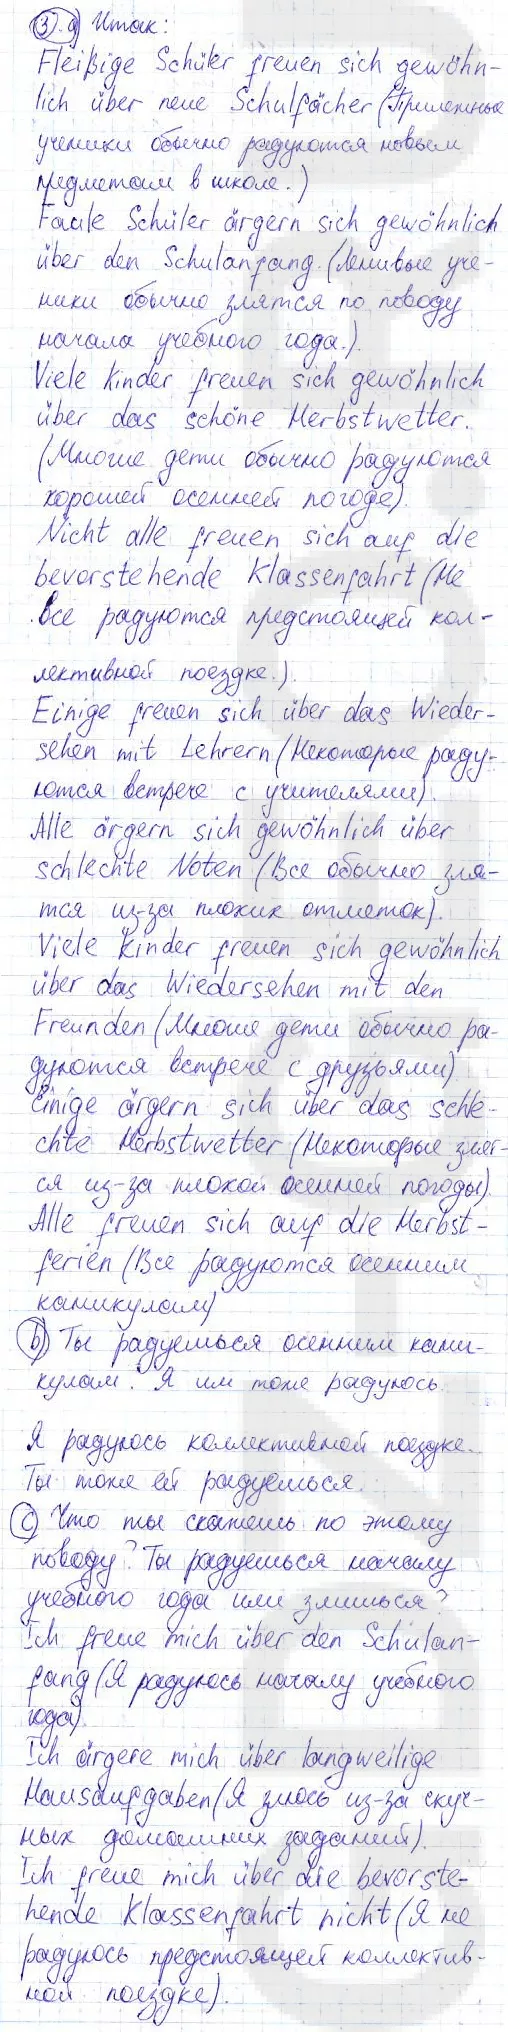 3. a) Итак:
Fleißige Schüler freuen sich gewöhn-
lich über neue Schulfächer (Прилежные
ученики обычно радуются новым
предметам в школе.)
Faule Schüler ärgern sich gewöhnlich
über den Schulanfang. (Ленивые уче-
ники обычно злятся по поводу
начала учебного года.)
Viele Kinder freuen sich gewöhnlich
über das schöne Herbstwetter.
(Многие дети обычно радуются
хорошей осенней погоде).
Nicht alle freuen sich auf die
bevorstehende Klassenfahrt (Не
все радуются предстоящей кол-
лективной поездке.).
Einige freuen sich über das Wieder-
sehen mit Lehrern (Некоторые раду-
ются встрече с учителями).
Alle ärgern sich gewöhnlich über
schlechte Noten (Все обычно зля-
тся из-за плохих отметок).
Viele Kinder freuen sich gewöhnlich
über das Wiedersehen mit den
Freunden (Многие дети обычно ра-
дуются встрече с друзьями)
Einige ärgern sich über das schle-
chte Herbstwetter (Некоторые злят-
ся из-за плохой осенней погоды).
Alle freuen sich auf die Herbst-
ferien (Все радуются осенним
каникулам)
b) Ты радуешься осенним кани-
кулам. Я им тоже радуюсь.
Я радуюсь коллективной поездке.
Ты тоже ей радуешься.
c) Что ты скажешь по этому
поводу? Ты радуешься началу
учебного года или злишься?
Ich freue mich über den Schulan-
fang (Я радуюсь началу учебного
года)
Ich ärgere mich über langweilige
Hausaufgaben (Я злюсь из-за скуч-
ных домашних заданий).
Ich freue mich über die bevorste-
hende Klassenfahrt nicht (Я не
радуюсь предстоящей коллектив-
ной поездке).